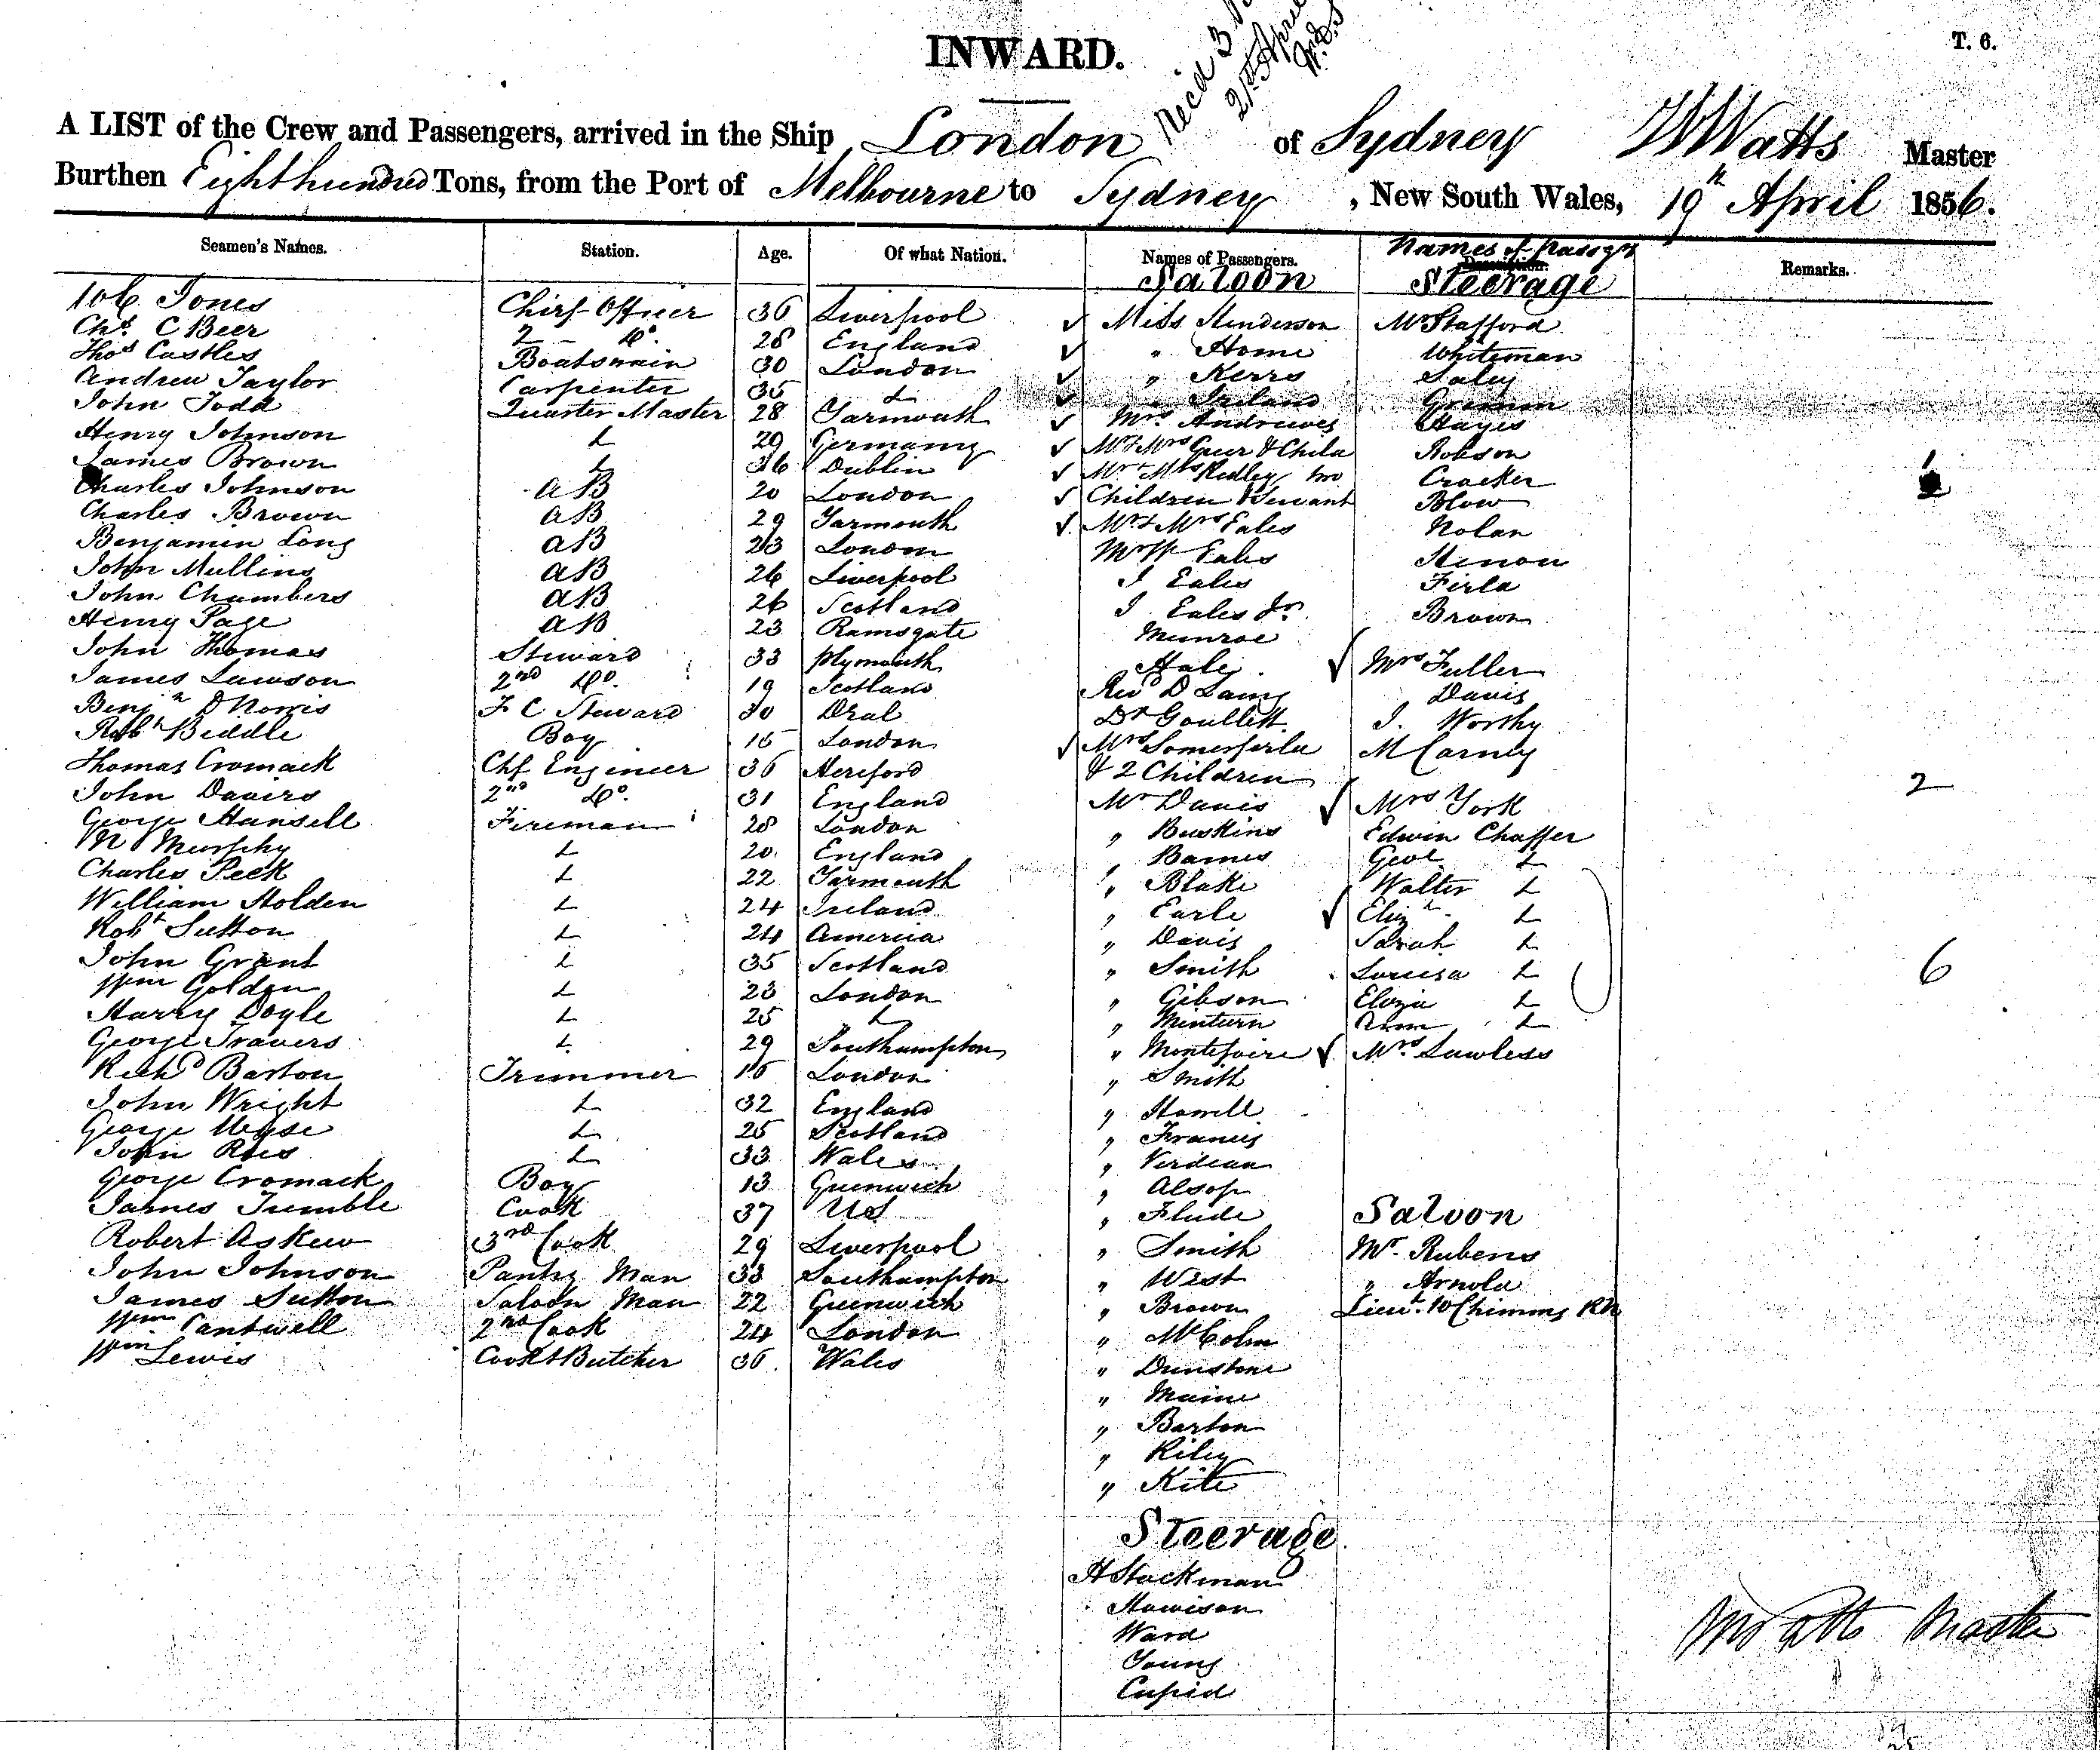 INWARD.
T. 6.
Rec'd 3
21st April
A LIST of the Crew and Passengers, arrived in the Ship London of Sydney W Watts Master
Burthen Eight hundred Tons, from the Port of Melbourne to Sydney, New South Wales, 19th April 1856.
Seamen's Names. Station. Age. Of what Nation. Names of Passengers. Saloon Names of Passgrs Steerage Remarks.
Jones Chief Officer 36 Liverpool Miss Henderson Mr Stafford
Chs. C Beer 2 Do. 28 England " Home Whiteman
Thos Castles Boatswain 30 London " Kerrs
Andrew Taylor Carpenter 35 Do " Ireland
John Todd Quarter Master 28 Yarmouth Mrs. Andrewes Hayes
Henry Johnson Do 29 Germany Mr & Mrs Geer & Child Robson
James Brown Do 36 Dublin Mr & Mrs Ridley two Cracker
Charles Johnson AB 20 London Children & Servant Blow
Charles Brown AB 29 Yarmouth Mr & Mrs Eales Nolan
Benjamin Long AB 23 London Mr W Eales Henon
John Mullins AB 26 Liverpool J Eales
John Chambers AB 26 Scotland J. Eales Jr. Brown
Henry Page AB 23 Ramsgate Munroe
John Thomas Steward 33 Plymouth Hale Mrs Fuller
James Lawson 2nd Do. 19 Scotland Revd D Laing Davis
Benjn D Norris F C Steward 30 Deal Dr Goullett J. Worthy
Robt Biddle Boy 15 London Mrs Somerfeild M Carney
Thomas Cromack Chf Engineer 36 Hereford & 2 Children
John Daviers 2nd Do. 31 England Mr Davis Mrs York 2
George Hansell Fireman 28 London " Buskins Edwin Chaffer
M Murphy Do 20 England " Barnes Geoe Do
Charles Peek Do 22 Yarmouth " Blake Walter Do
William Holden Do 24 Ireland " Earle Elizth Do
Robt Sutton Do 24 America " Davis Sarah Do
John Grant Do 35 Scotland " Smith Louisa Do 6
Wm Golden Do 23 London " Gibson Eliza Do
Harry Doyle Do 25 Do " Minturn Ann Do
George Travers Do 29 Southampton " Montefoire Mrs. Lawless
Richd Barton Trimmer 18 London " Smith
John Wright Do 32 England " Howell
George Do 25 Scotland " Francis
John Rees Do 33 Wales " Verdean
George Cromack Boy 13 Greenwich " Alsop
James Tumble Cook 37 US " Flude Saloon
Robert Askew 3rd Cook 29 Liverpool " Smith Mr. Rubens
John Johnson Pantry Man 33 Southampton " West " Arnold
James Sutton Saloon Man 22 Greenwich " Brown Lieut. RN
Wm Cantwell 2nd Cook 24 London " McColm
Wm Lewis Cook & Butcher 36 Wales " Dunstone
" Maine
" Barton
" Riley
" Kite
Steerage
H Stockman
Howison
Ward
Young
Cupid
W Watts Master